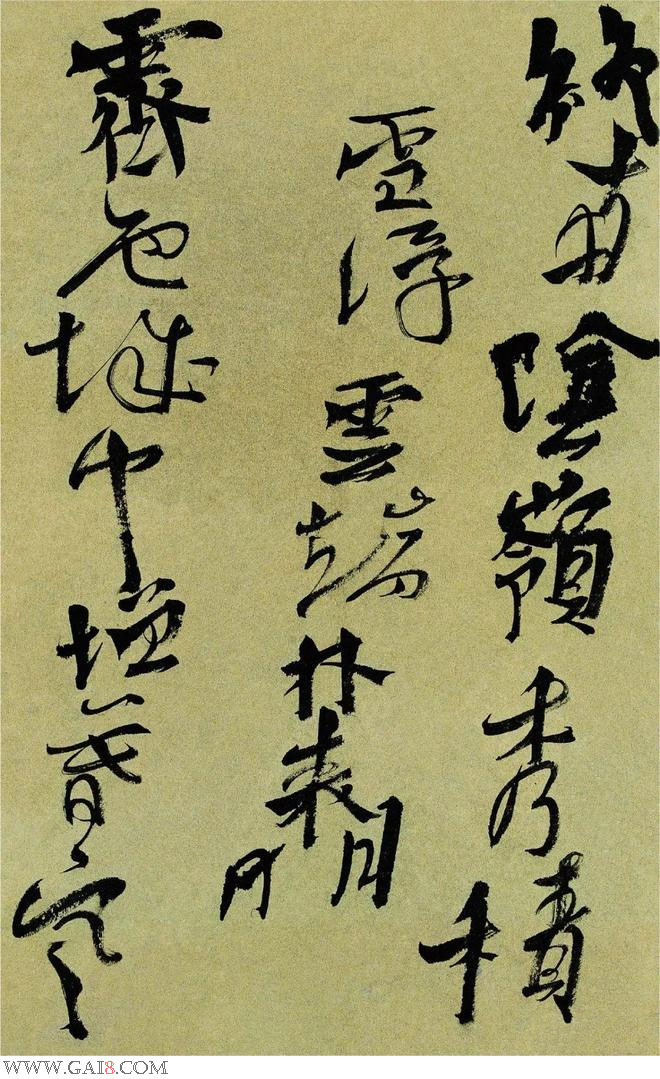 終南陰嶺秀積
雪浮雲端林表明
霽色城中增暮寒
WWW.GAI8.COM